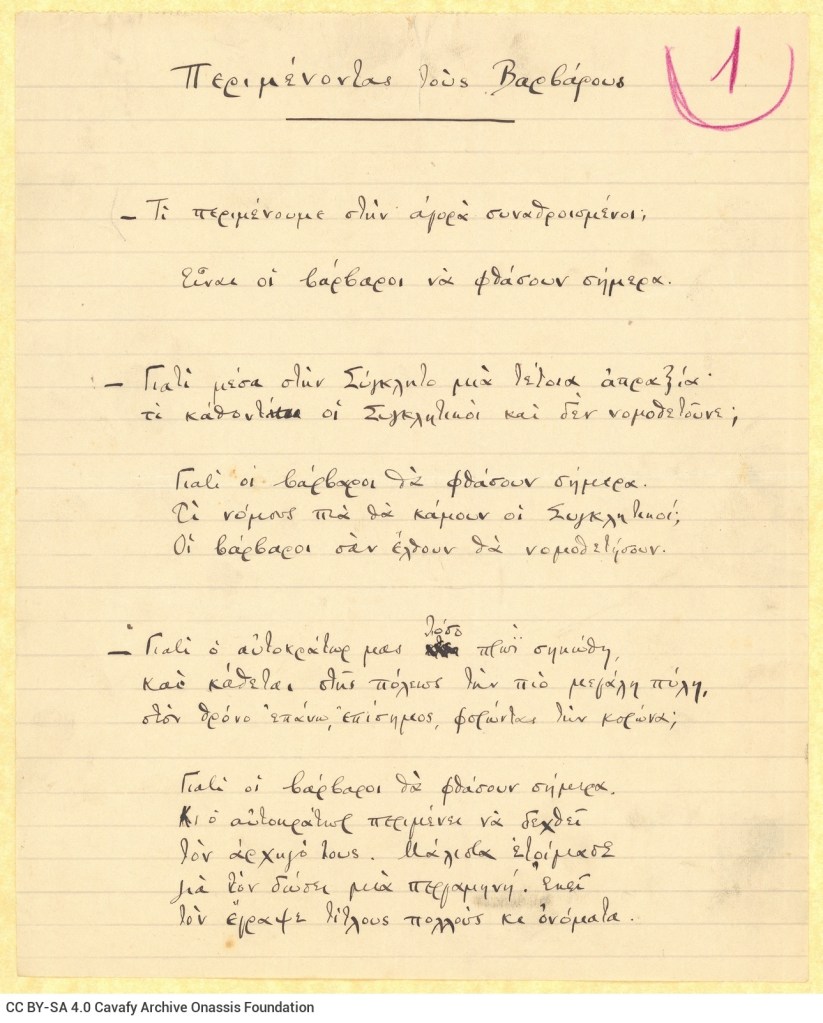 Περιμένοντας τοὺς Βαρβάρους
1
— Τί περιμένουμε στὴν ἀγορὰ συναθροισμένοι;
Εἶναι οἱ βάρβαροι νὰ φθάσουν σήμερα.
— Γιατὶ μέσα στὴν Σύγκλητο μιὰ τέτοια ἀπραξία·
τὶ κάθοντ οἱ Συγκλητικοὶ καὶ δὲν νομοθετοῦνε;
Γιατὶ οἱ βάρβαροι θὰ φθάσουν σήμερα.
Τὶ νόμους πιὰ θὰ κάμουν οἱ Συγκλητικοί;
Οἱ βάρβαροι σὰν ἔλθουν θὰ νομοθετήσουν.
— Γιατὶ ὁ αὐτοκράτωρ μας τόσο πρωῒ σηκώθη,
καὶ κάθεται στῆς πόλεως τὴν πιὸ μεγάλη πύλη,
στὸν θρόνο ἐπάνω, ἐπίσημος, φορώντας τὴν κορώνα;
Γιατὶ οἱ βάρβαροι θὰ φθάσουν σήμερα.
Κι ὁ αὐτοκράτωρ περιμένει νὰ δεχθεῖ
τὸν ἀρχηγό τους. Μάλιστα ἑτοίμασε
γιὰ τὸν δώσει μιὰ περγαμηνή. Ἐκεῖ
τὸν ἔγραψε τίτλους πολλοὺς κι ὀνόματα.
CC BY-SA 4.0 Cavafy Archive Onassis Foundation